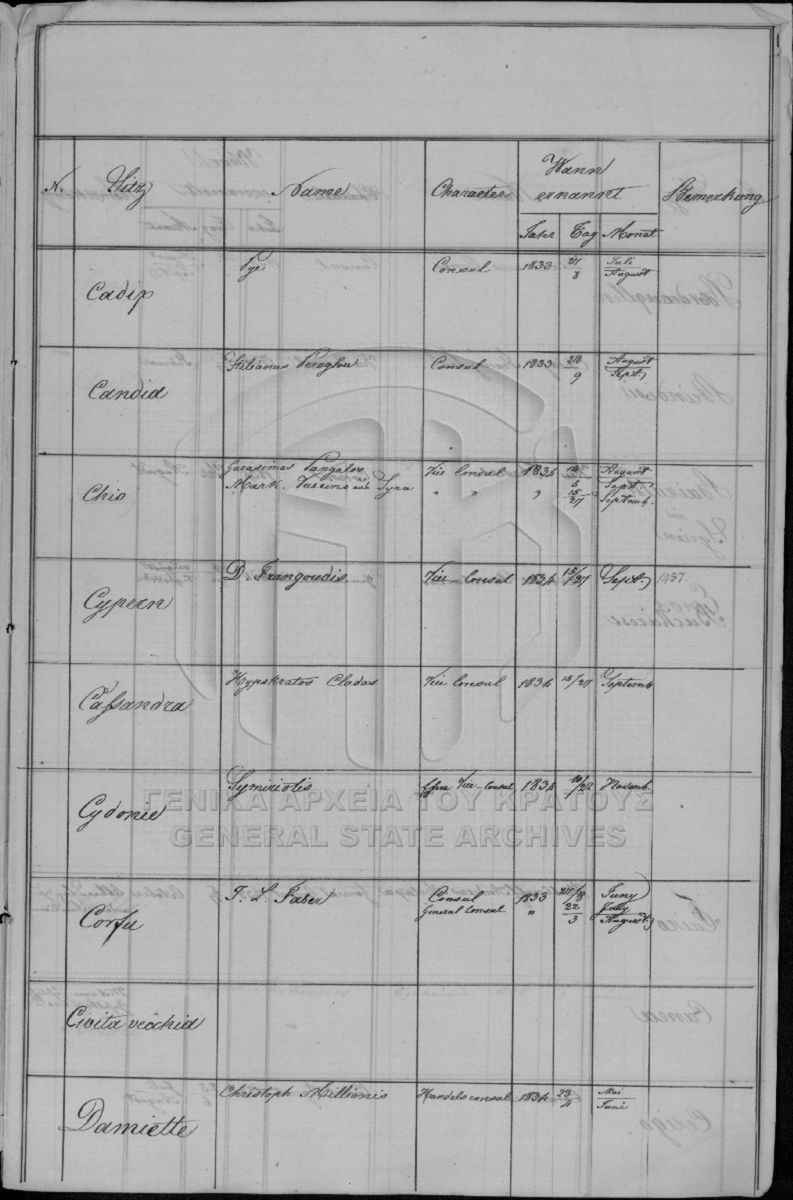 N. Sitz Name Character Wann ernannt Bemerkung
Jahr Tag Monat
Cadix Pye Consul 1833 27/8 Juli/August
Candia Stilianus Peroglou Consul 1833 28/9 August/Sept
Chio Gerasimos Pangalos Vice Consul 1834 August/Sept
Mark. Syra " " " 15/27 Septemb.
Cypern D. Frangoudis Vice-Consul 1834 15/27 Sept 1437.
Cassandra Hypokratos Cladas Vice Consul 1834 15/27 Septemb
Cydonie Symiriotis Vice-Consul 1834 10/22 Novemb.
Corfu Consul 1833 27/8 Juny
General Consul " 22/3 July/August
Civita vecchia
Damiette Christoph Millionis Handelsconsul 1834 23/4 Mai/Juni
ΓΕΝΙΚΑ ΑΡΧΕΙΑ ΤΟΥ ΚΡΑΤΟΥΣ
GENERAL STATE ARCHIVES